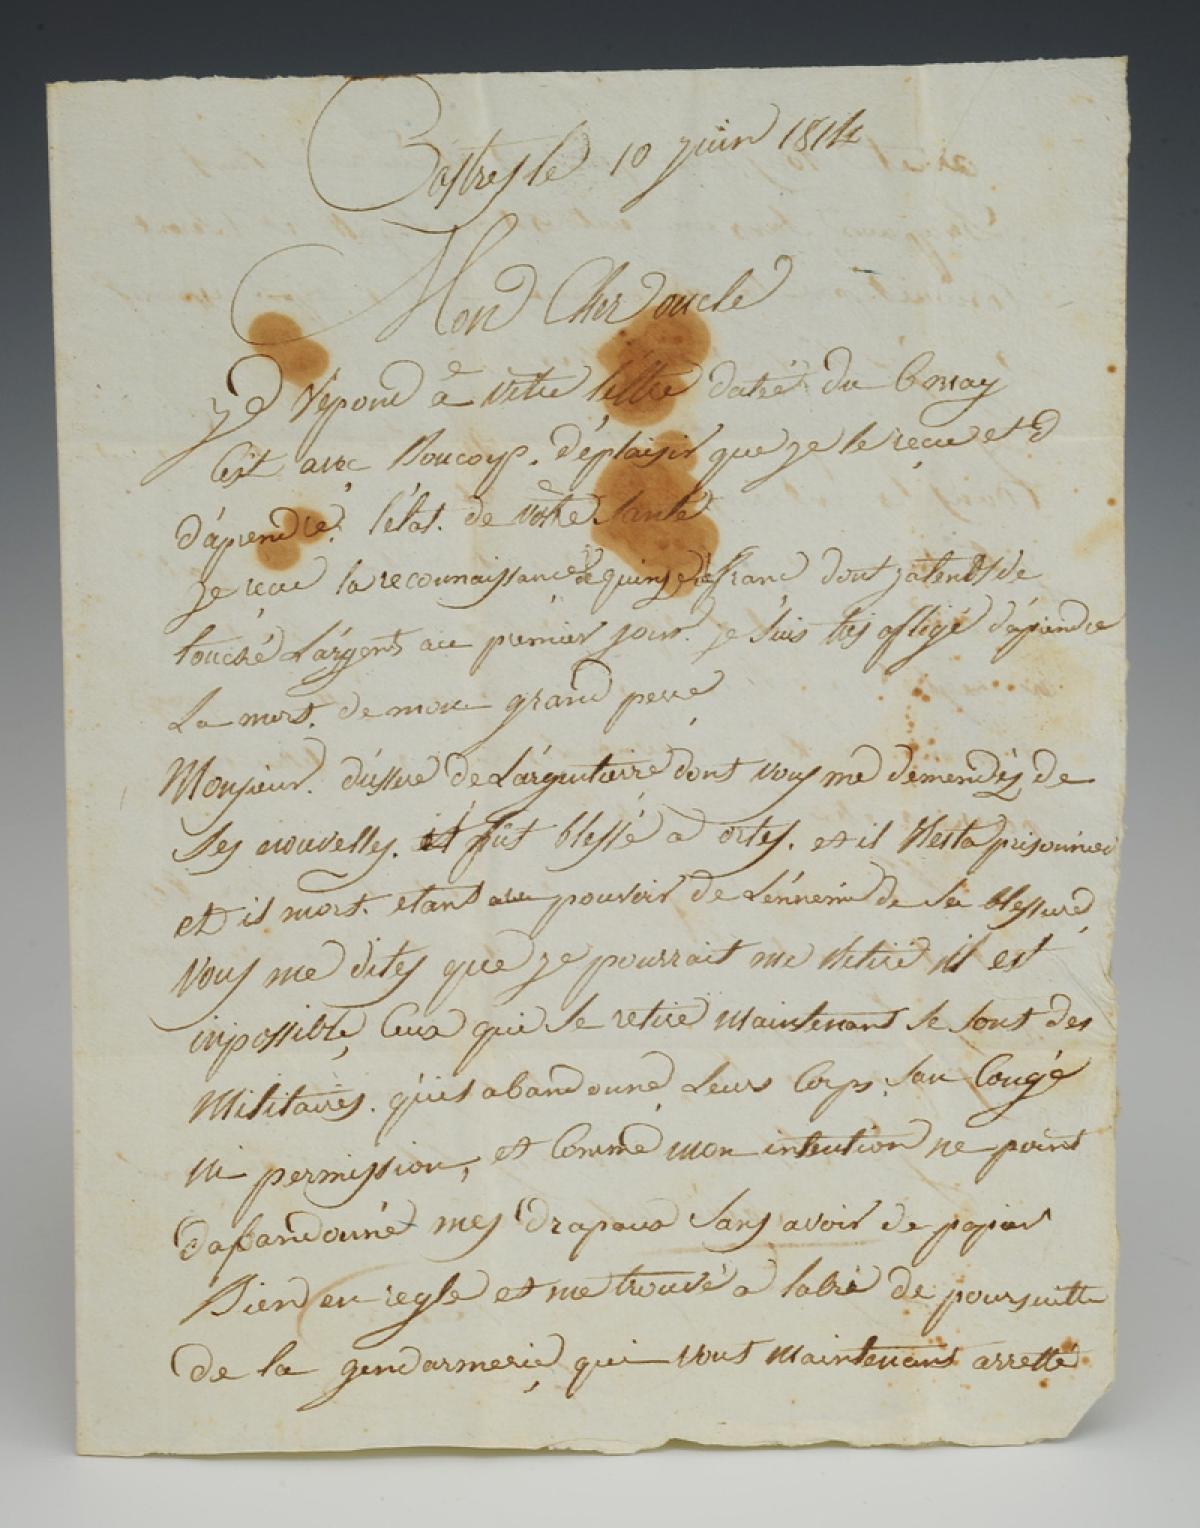 Castres le 10 juin 1814
Mon Cher oncle
je répond a votre lettre daté du 6 may
C'est avec Boucoup. déplaisir que je le reçue et
d'aprendre l'état. de votre santé
je recue la reconnaissance de quinze franc dont j'atends de
touché L'argent au premier jour. je suis tres afligé d'apiendre
La mort. de mon grand perre
Monsieur. de L'argentierre dont vous me demendéz de
ses nouvelles. il fut blessé a ortes. et il resta prisonnier
et il mort. etant au pouvoir de L'énnemi de sa blessure
vous me dites que je pourrait me retiré il est
inpossible, Ceux qui se retire maintenant se sont des
Militaires. qu'is abandonné Leurs Corps. san Congé
ni permission, et Comme mon intention ne point
d'abandonné mes drapaux sans avoir de papier
Bien en regle et me trouvé a labri de poursuitte
de la gendarmerie, qui vont maintenant arretté